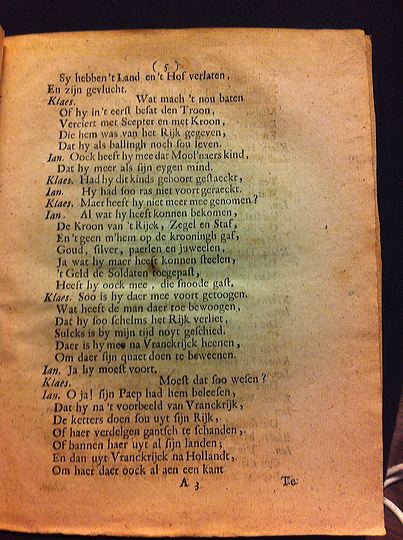 ( 5 )
Sy hebben 't Land en 't Hof verlaten,
En zijn gevlucht.
Klaes. Wat mach 't nou baten
Of hy in 't eerst besat den Troon,
Verciert met Scepter en met Kroon,
Die hem was van het Rijk gegeven,
Dat hy als ballingh noch sou leven.
Ian. Oock heeft hy mee dat Mool'naers kind,
Dat hy meer als sijn eygen mind.
Klaes. Had hy dit kinds gehoort gestaeckt,
Ian. Hy had soo ras niet voort geraeckt.
Klaes. Maer heeft hy niet meer mee genomen?
Ian. Al wat hy heeft konnen bekomen,
De Kroon van 't Rijck, Zegel en Staf,
En 't geen m'hem op de krooningh gaf,
Goud, silver, paerlen en juweelen,
Ja wat hy maer heeft konnen steelen,
't Geld de Soldaten toegepast,
Heeft hy oock mee, die snoode gast.
Klaes. Soo is hy daer mee voort getoogen.
Wat heeft de man daer toe bewoogen,
Dat hy soo schelms het Rijk verliet,
Sulcks is by mijn tijd noyt geschied.
Daer is hy mee na Vranckrijck heenen,
Om daer sijn quaet doen te beweenen.
Ian. Ja hy moest voort,
Klaes. Moest dat soo wesen?
Ian. O ja! sijn Paep had hem beleesen,
Dat hy na 't voorbeeld van Vranckrijk,
De ketters doen sou uyt sijn Rijk,
Of haer verdelgen gantsch te schanden,
Of bannen haer uyt al sijn landen;
En dan uyt Vranckrijck na Hollandt,
Om haer daer oock al aen een kant
A 3 To